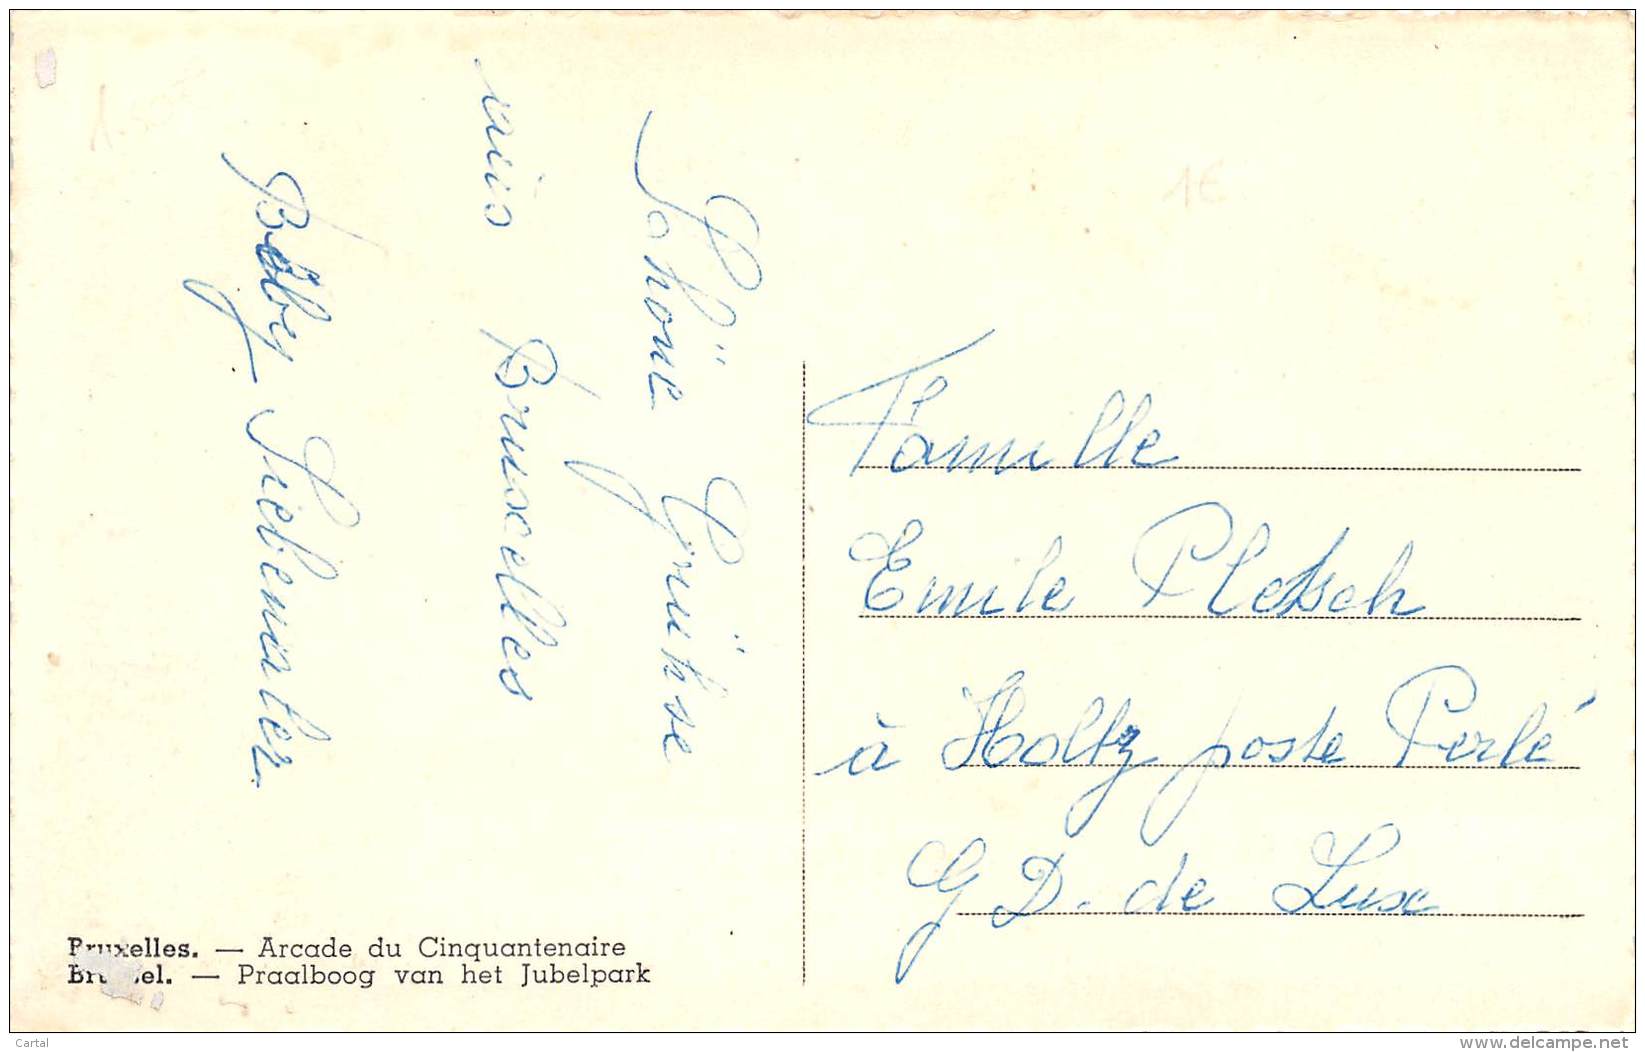 Schöne Grühse
aus Bruxelles
Bobby Siebenaler
Famille
Emile Pletsch
à Holtz poste Perlé
G D. de Lux
Bruxelles. — Arcade du Cinquantenaire
Brussel. — Praalboog van het Jubelpark
1€
Cartal
www.delcampe.net